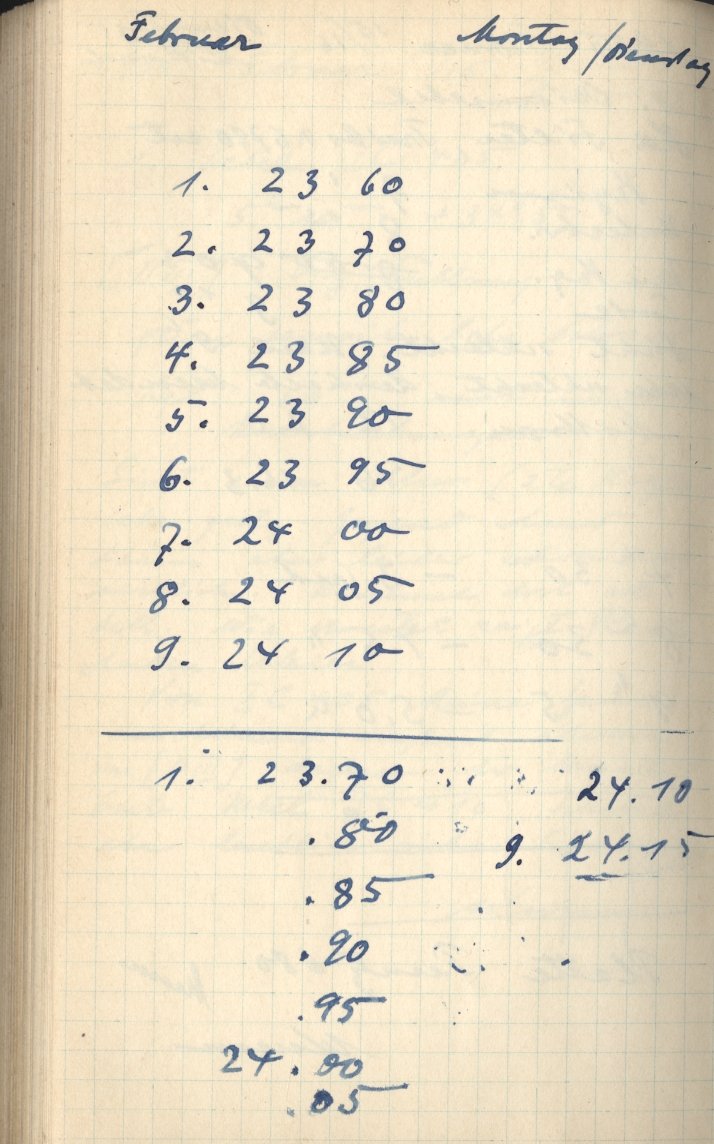 Februar Montag / Dienstag
1. 23 60
2. 23 70
3. 23 80
4. 23 85
5. 23 90
6. 23 95
7. 24 00
8. 24 05
9. 24 10
1. 23.70 24.10
.80 9. 24.15
.85
.90
.95
24.00
.05